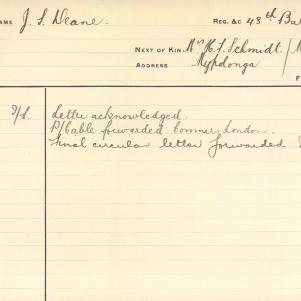 NAME J. S. Deane. REG. &C 48th Ba
NEXT OF KIN Mrs H. F. Schmidt.
ADDRESS Mypdonga
F
Letter acknowledged.
P/Cable forwarded Commrs London.
Final circular letter forwarded